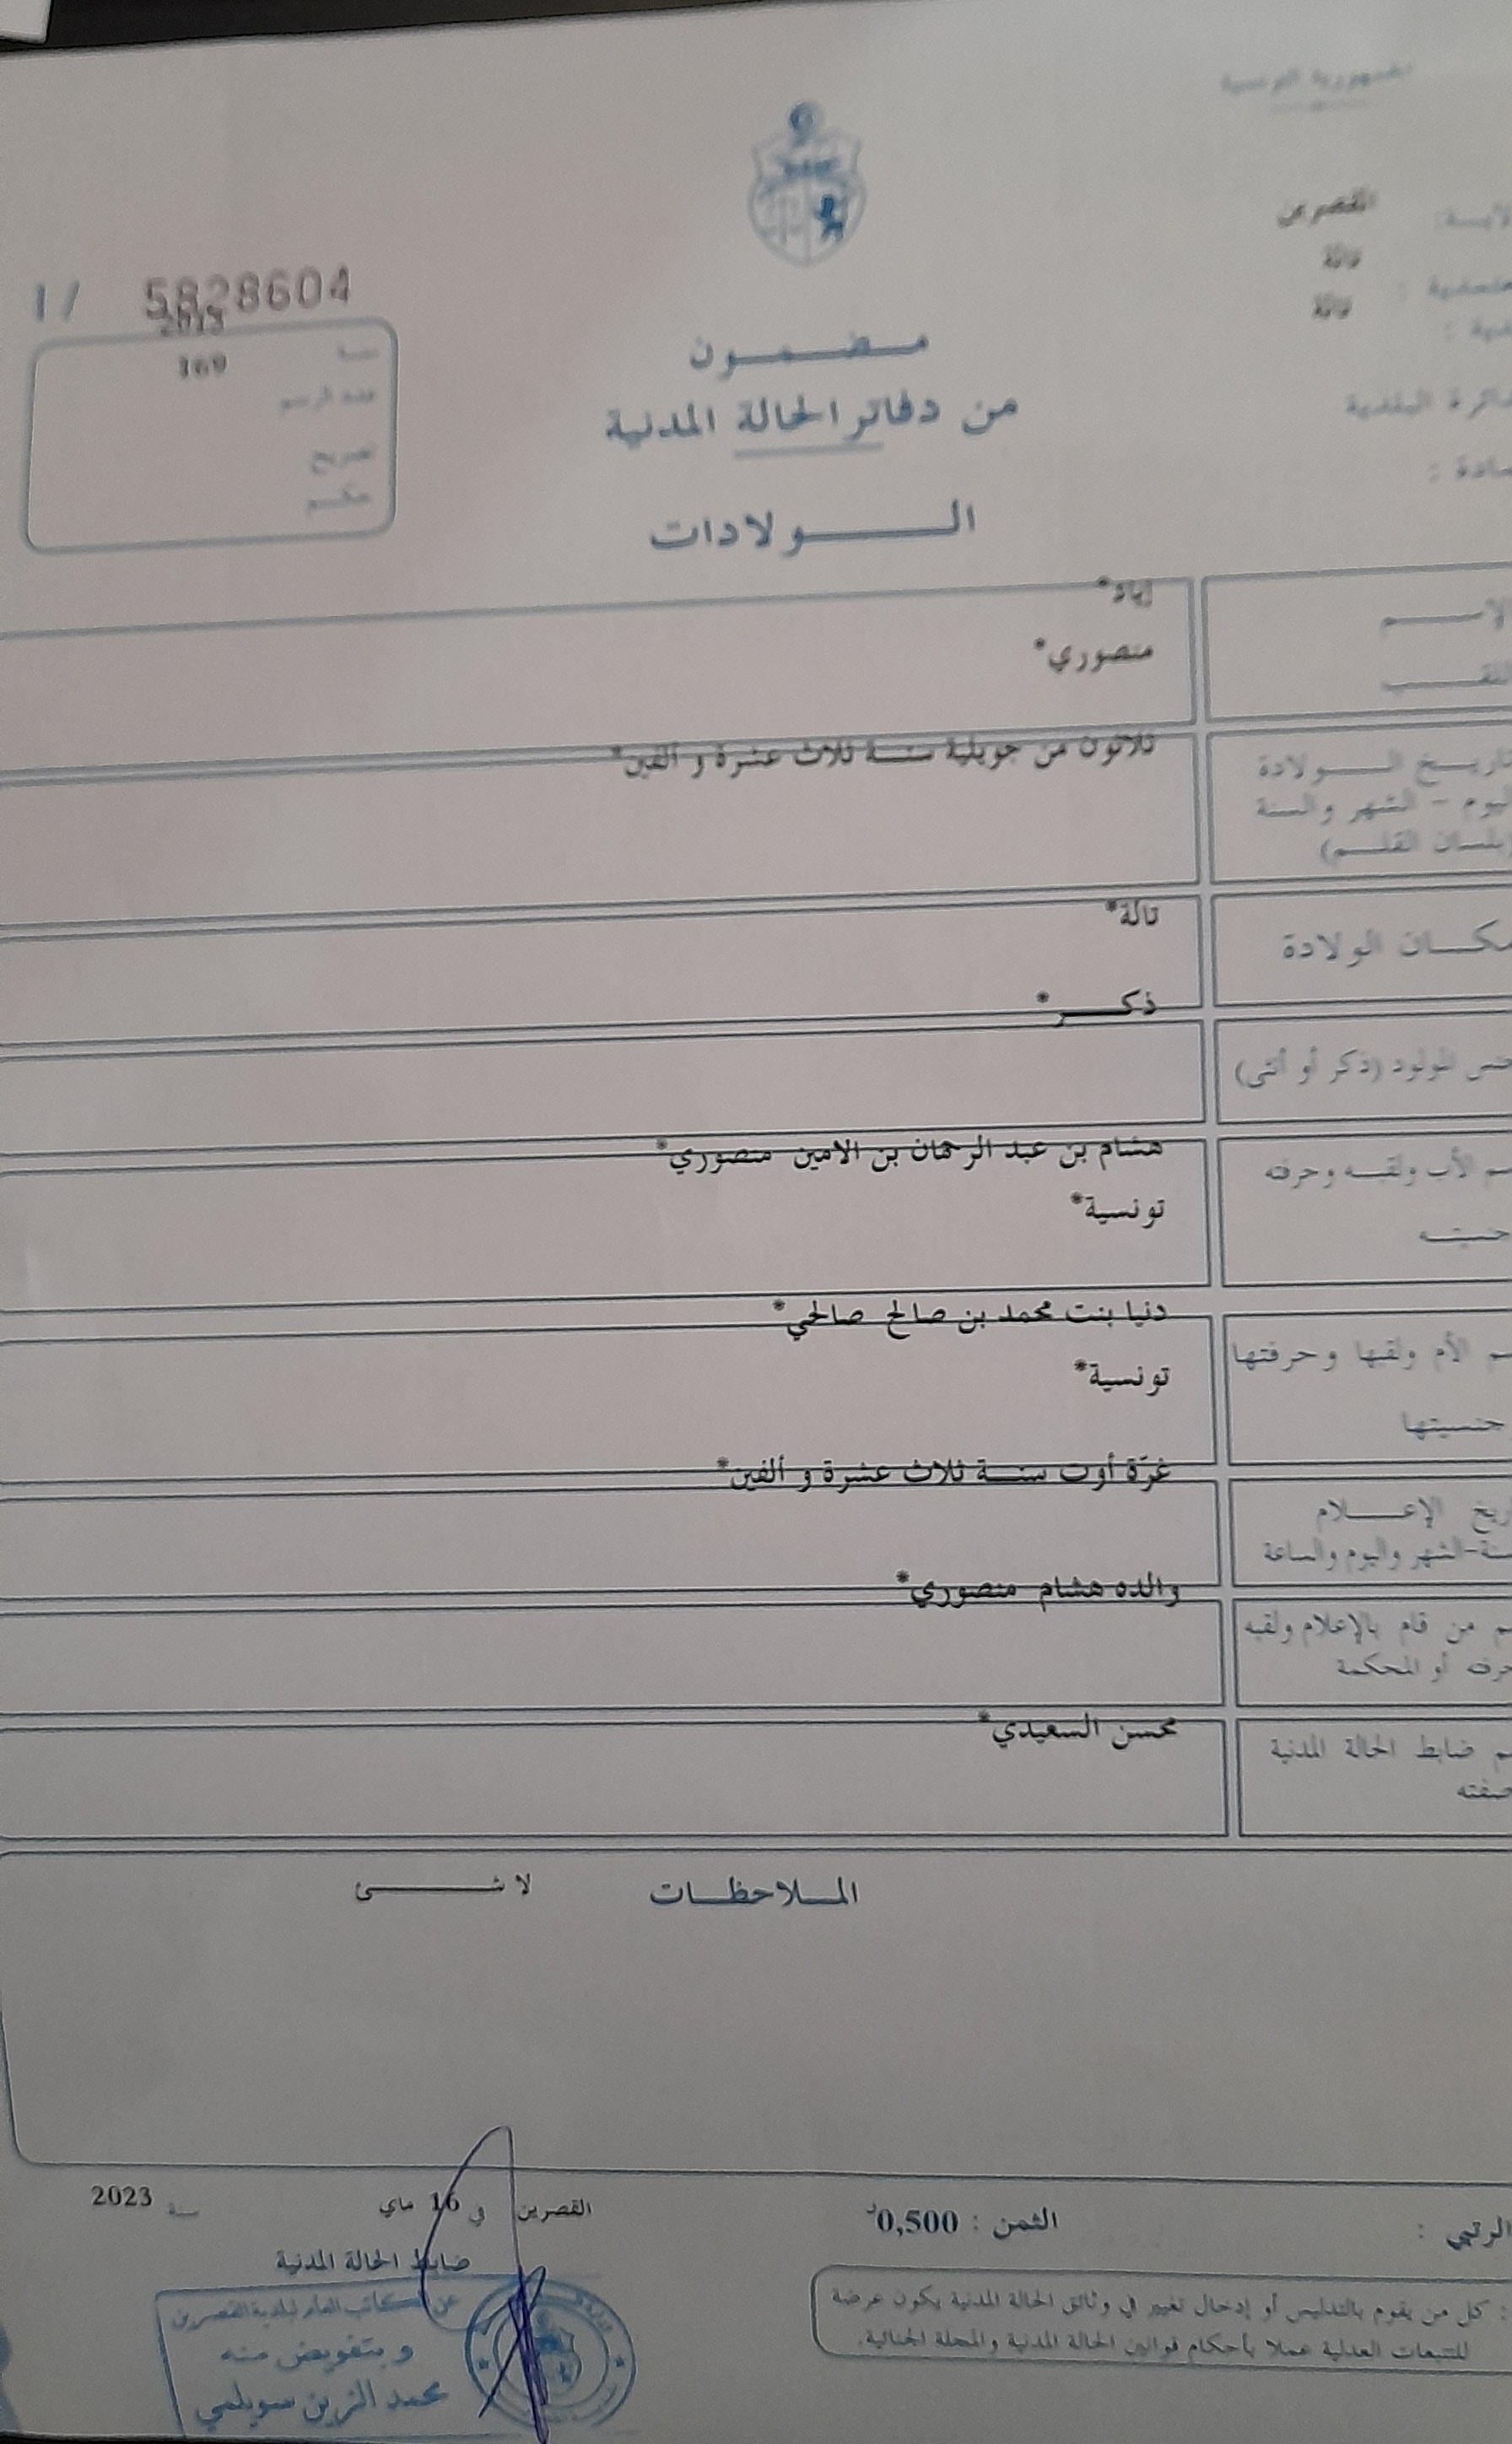 الجمهورية التونسية
القصرين
تالة
تالة
1/ 5828604
2013
سنة
169
عدد الرسم
تصريح
حكم
مضمون
من دفاتر الحالة المدنية
الولادات
دائرة البلدية
الإسم
إياد*
اللقب
منصوري*
تاريخ الولادة
اليوم - الشهر والسنة
(بلسان القلم)
ثلاثون من جويلية سنة ثلاث عشرة و ألفين*
مكان الولادة
تالة*
ذكر*
جنس المولود (ذكر أو أنثى)
هشام بن عبد الرحمان بن الامين منصوري*
اسم الأب ولقبه وحرفته
جنسيته
تونسية*
دنيا بنت محمد بن صالح صالحي*
اسم الأم ولقبها وحرفتها
جنسيتها
تونسية*
غرّة أوت سنة ثلاث عشرة و ألفين*
تاريخ الإعلام
السنة-الشهر واليوم والساعة
والده هشام منصوري*
اسم من قام بالإعلام ولقبه
حرفته أو المحكمة
محسن السعيدي*
اسم ضابط الحالة المدنية
صفته
الملاحظات لا شى
القصرين في 16 ماي سنة 2023
ضابط الحالة المدنية
عن الكاتب العام لبلدية القصرين
و بتفويض منه
محمد الزين سويلمي
الثمن : 0,500د
الرتبي :
: كل من يقوم بالتدليس أو إدخال تغيير في وثائق الحالة المدنية يكون عرضة
للتتبعات العدلية عملا بأحكام قوانين الحالة المدنية والمجلة الجنائية.